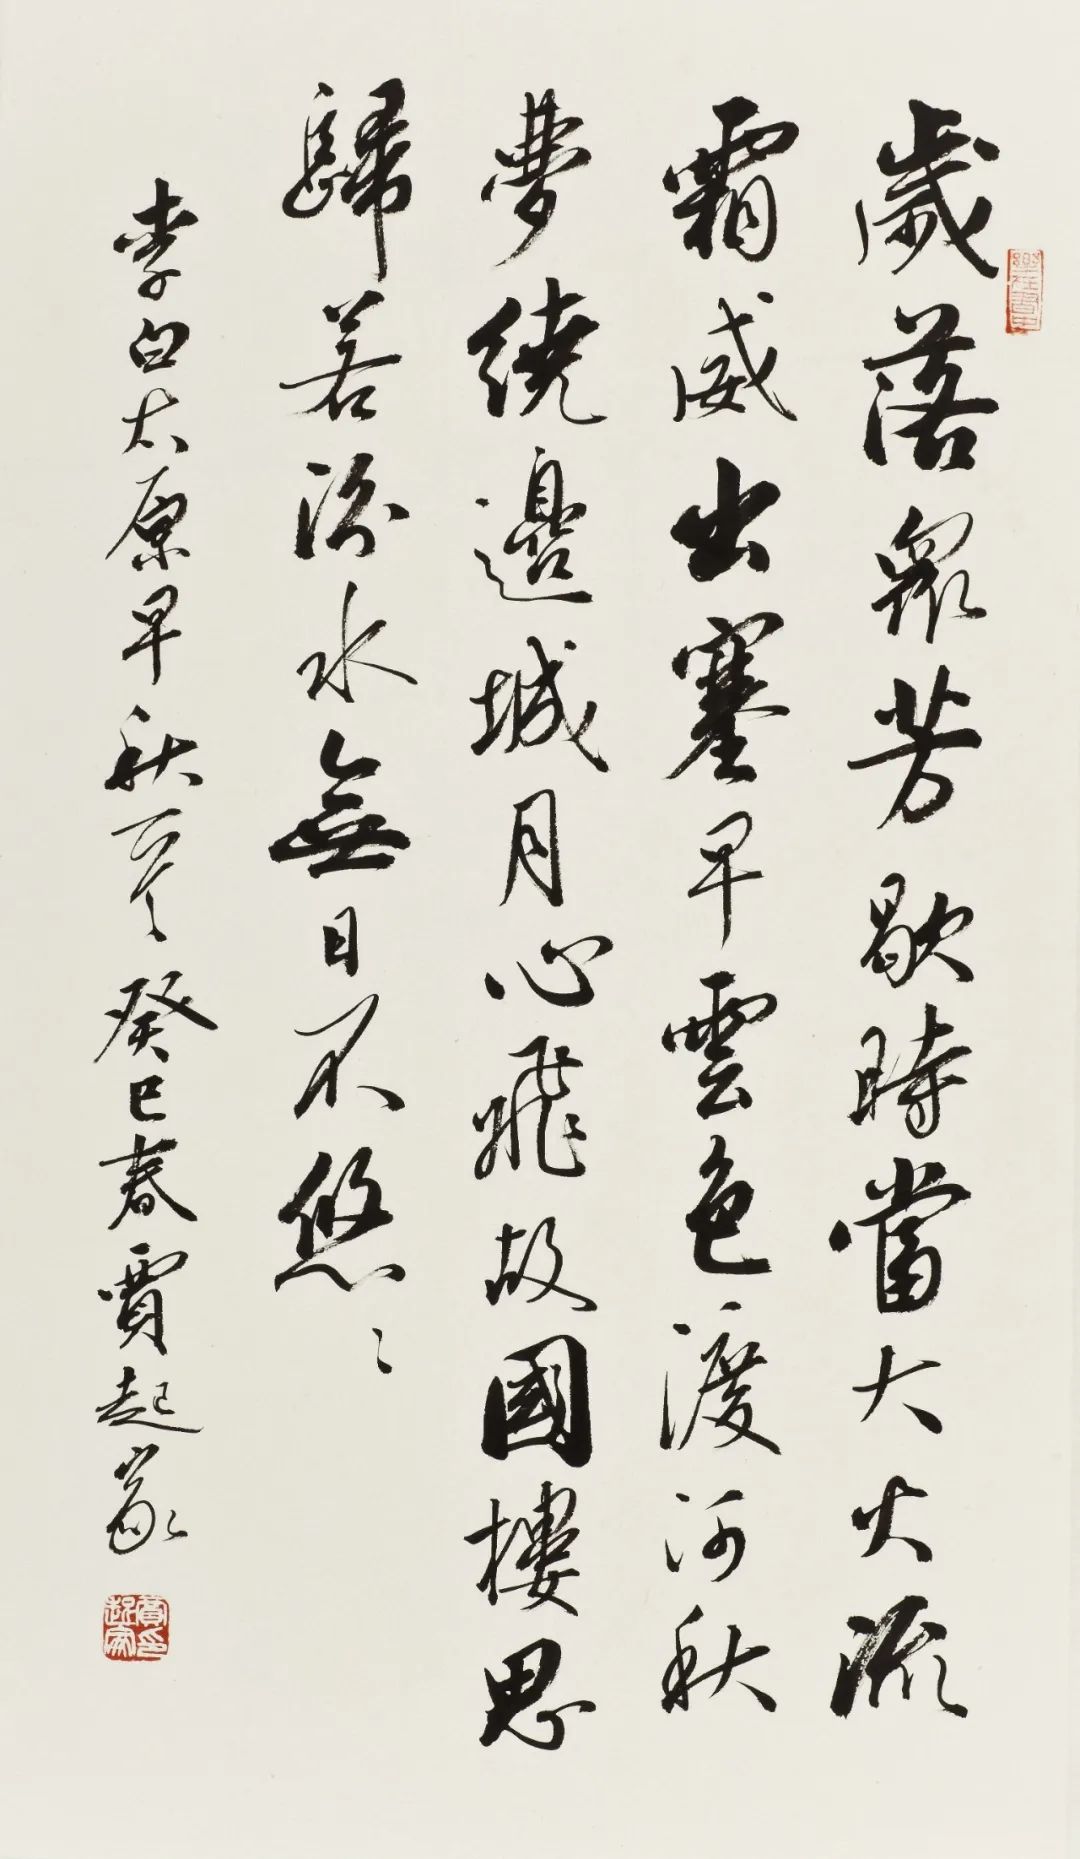 樂在書中
歲落衆芳歇時當大火流
霜威出塞早雲色渡河秋
夢繞邊城月心飛故國樓思
歸若汾水無日不悠〻
李白太原早秋 癸巳春賈起家
賈起家印